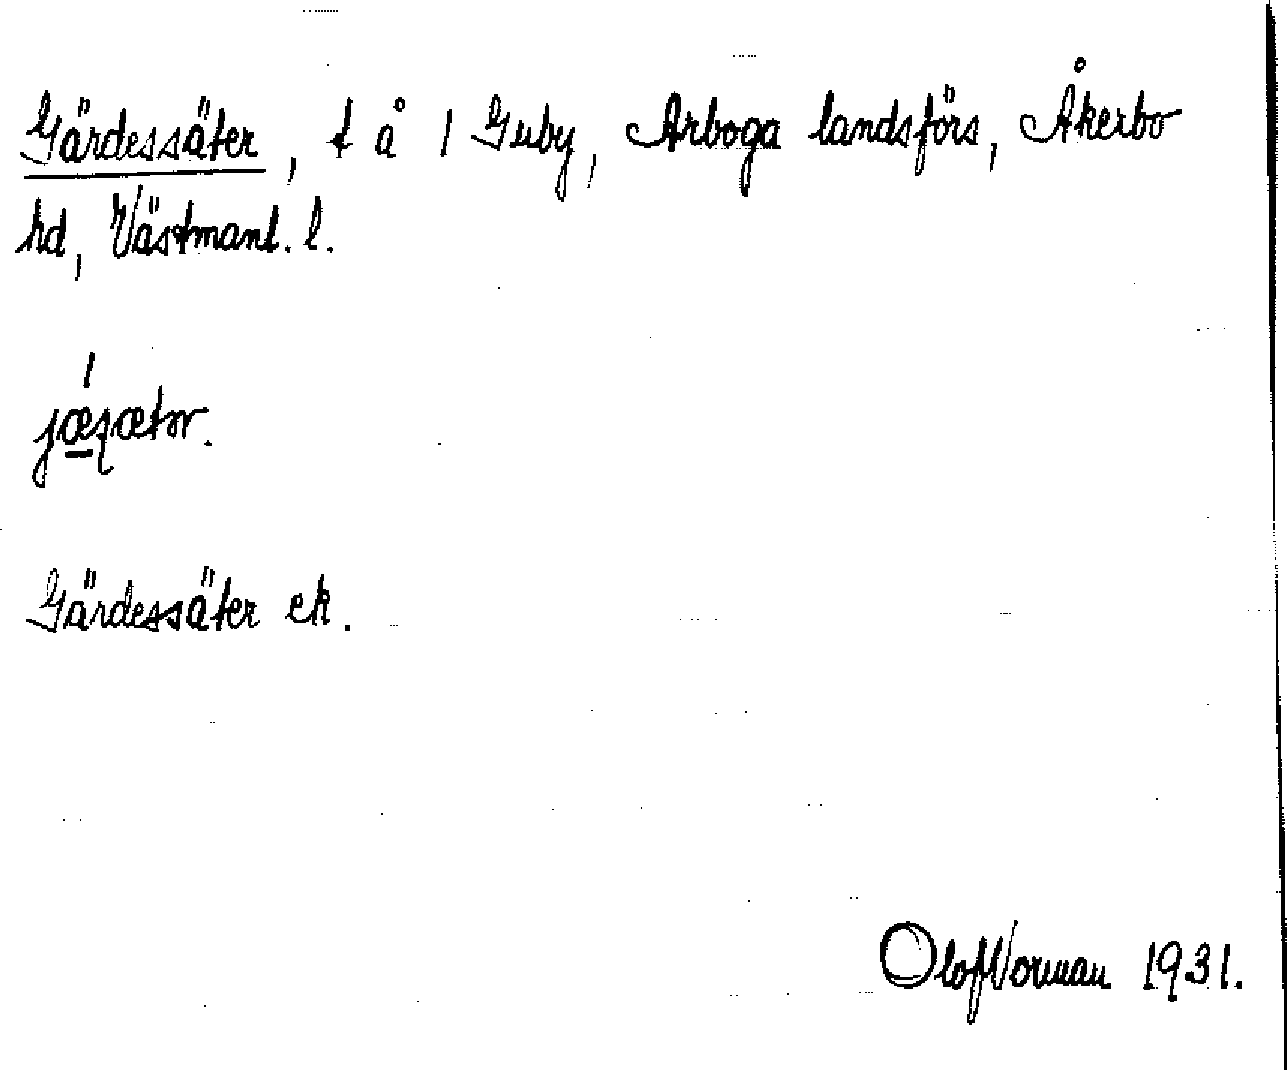 Gärdessäter, t å 1 Guby, Arboga landsförs, Åkerbo
hd, Västmanl. l.
Gärdessäter ek.
Olof Norman 1931.